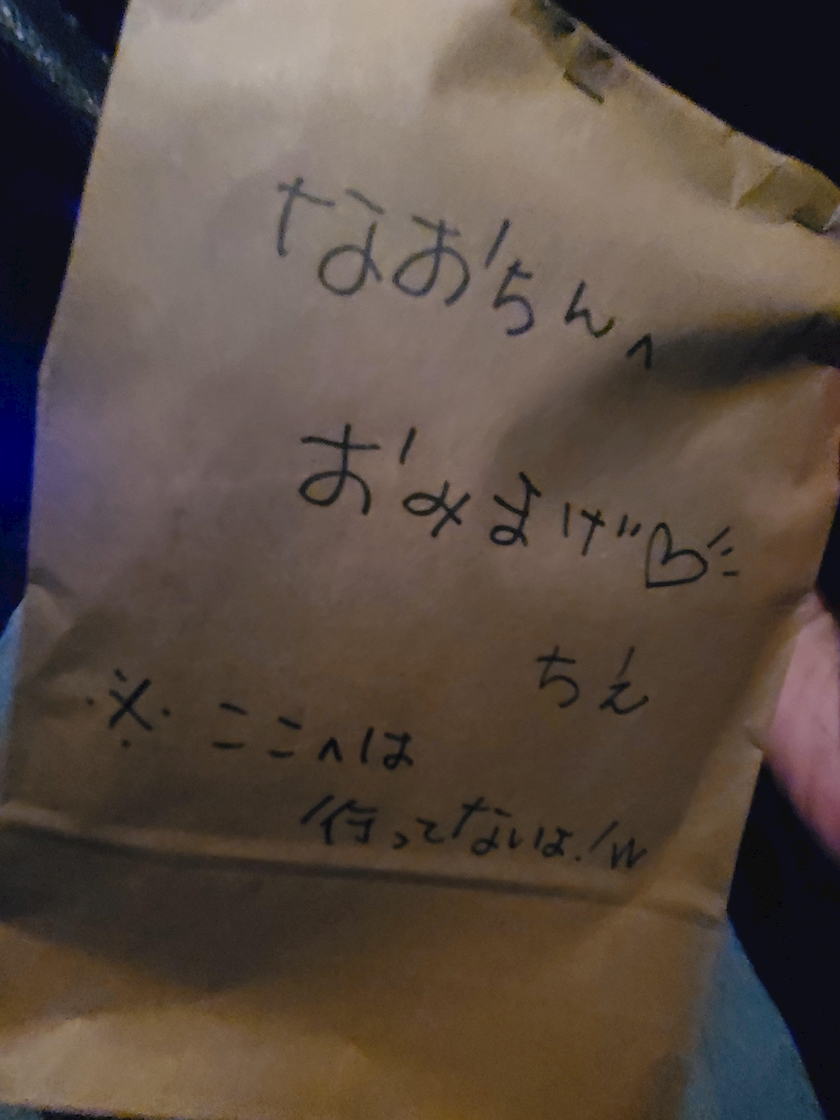 なおちんへ
おみまげ♡
ちえ
※ここへは
行ってないよ!w